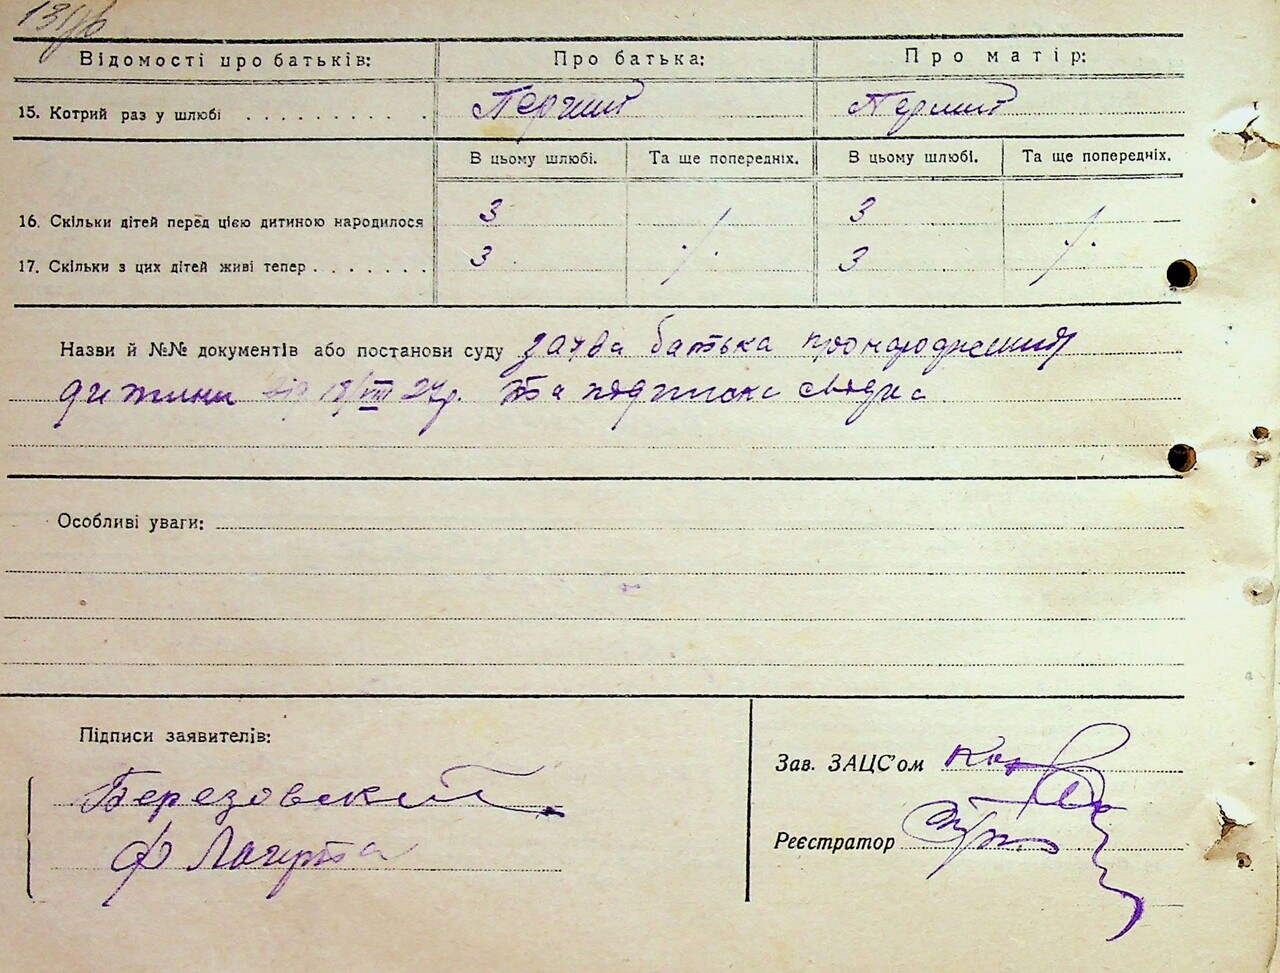 Відомості про батьків: Про батька: Про матір:
15. Котрий раз у шлюбі Перший Перший
В цьому шлюбі. Та ще попередніх. В цьому шлюбі. Та ще попередніх.
16. Скільки дітей перед цією дитиною народилося 3 3
17. Скільки з цих дітей живі тепер 3 3
Назви й №№ документів або постанови суду заява батька про народження
дитини від /VIII 27р. та підписка свідка
Особливі уваги:
Підписи заявителів:
Березовский
Зав. ЗАЦС'ом
Реєстратор